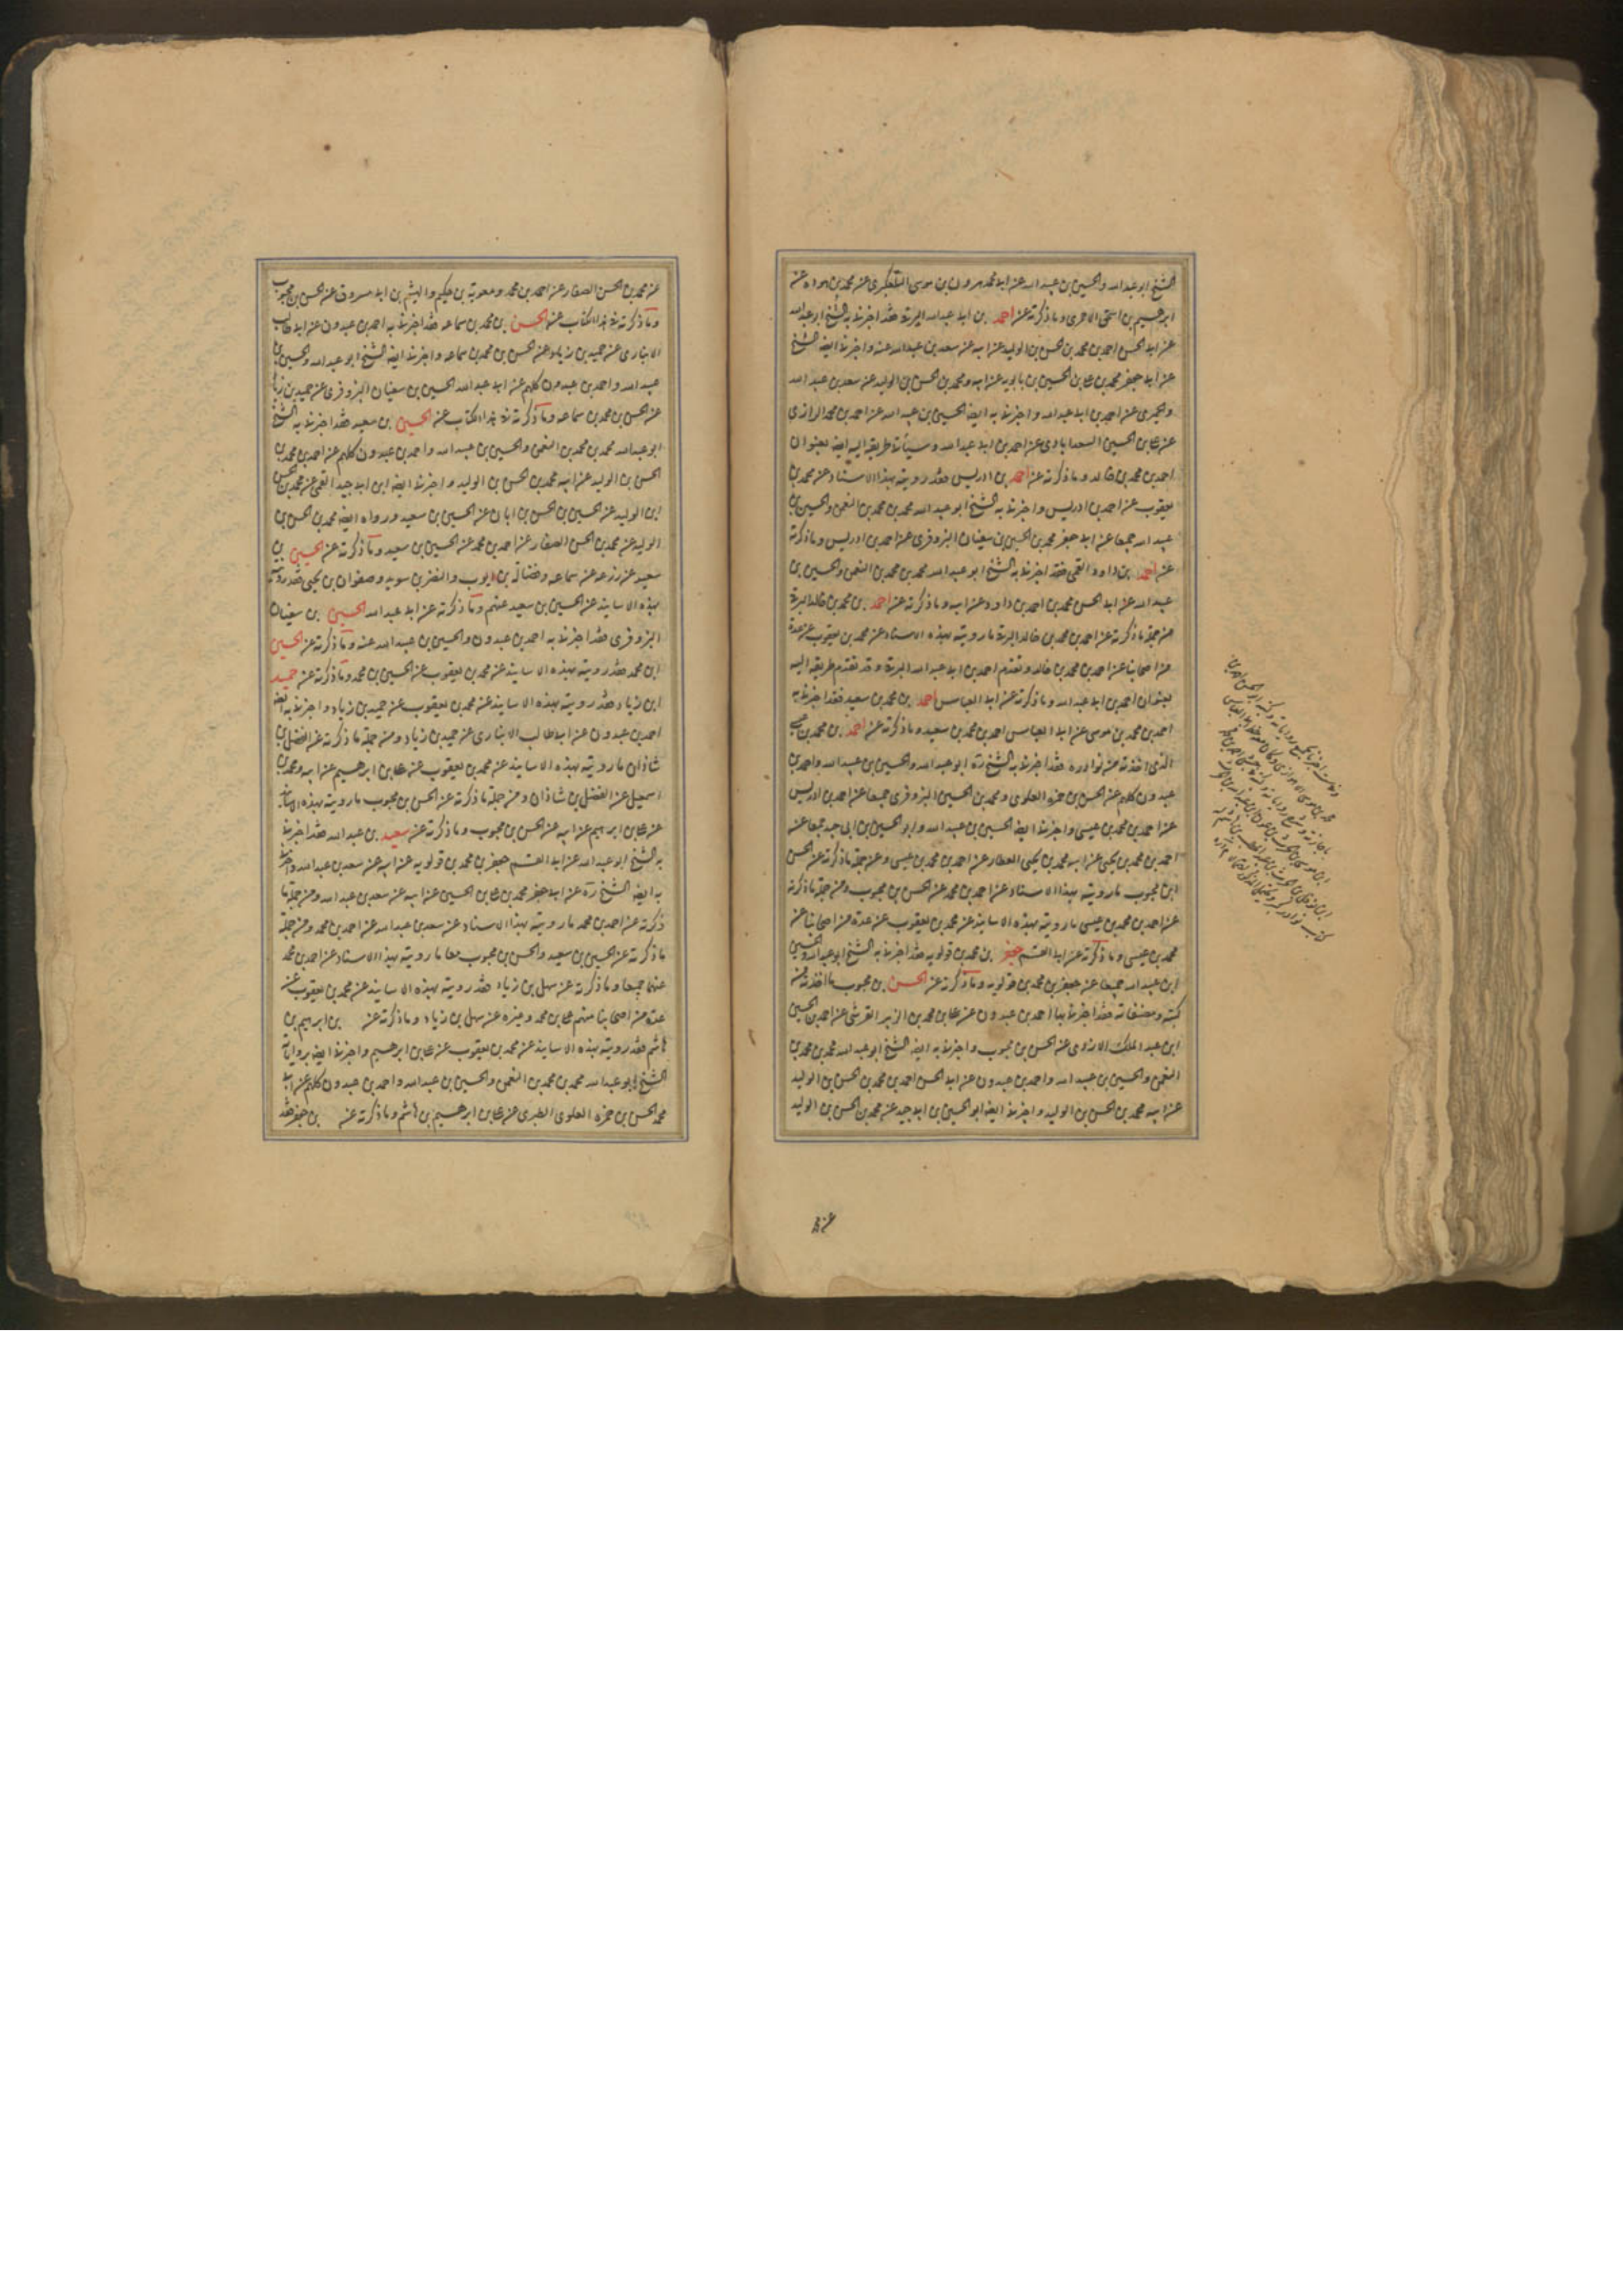 الشيخ ابو عبد الله والحسين بن عبيد الله عن ابي محمد هرون بن موسى التلعكبرى عن محمد بن هوذه عن
ابرهيم بن اسحق الاحمرى وما ذكرته عن احمد بن ابي عبد الله البرقى فقد اخبرنا به الشيخ ابو عبد الله
عن ابي الحسن احمد بن محمد بن الحسن بن الوليد عن ابيه عن سعد بن عبد الله عنه واخبرنا ايضا الشيخ
عن ابي جعفر محمد بن على بن الحسين بن بابويه عن ابيه ومحمد بن الحسن بن الوليد عن سعد بن عبد الله
والحميرى عن احمد بن ابي عبد الله واخبرنا به ايضا الحسين بن عبيد الله عن احمد بن محمد الزرارى
عن على بن الحسين السعدابادى عن احمد بن ابي عبد الله وسيأتى طريقه اليه ايضا بعنوان
احمد بن محمد بن خالد وما ذكرته عن احمد بن ادريس فقد رويته بهذا الاسناد عن محمد بن
يعقوب عن احمد بن ادريس واخبرنا به الشيخ ابو عبد الله محمد بن محمد بن النعمن والحسين بن
عبيد الله جميعا عن ابي جعفر محمد بن الحسين بن سفيان البزوفرى عن احمد بن ادريس وما ذكرته
عن احمد بن داود القمى فقد اخبرنا به الشيخ ابو عبد الله محمد بن محمد بن النعمن والحسين بن
عبيد الله عن ابي الحسن محمد بن احمد بن داود عن ابيه وما ذكرته عن احمد بن محمد بن خالد البرقى
من جملة ما ذكرته عن احمد بن محمد بن خالد البرقى ما رويته بهذه الاسناد عن محمد بن يعقوب عن عدة
من اصحابنا عن احمد بن محمد بن خالد وتقدم احمد بن ابي عبد الله البرقى وقد تقدم طريقه اليه
بعنوان احمد بن ابي عبد الله وما ذكرته عن ابي العباس احمد بن محمد بن سعيد فقد اخبرنا به
احمد بن محمد بن موسى عن ابي العباس احمد بن محمد بن سعيد وما ذكرته عن احمد بن محمد بن عيسى
الذى اخذته من نوادره فقد اخبرنا به الشيخ ره ابو عبد الله والحسين بن عبيد الله واحمد بن
عبدون كلهم عن الحسن بن حمزه العلوى ومحمد بن الحسين البزوفرى جميعا عن احمد بن ادريس
عن احمد بن محمد بن عيسى واخبرنا ايضا الحسين بن عبيد الله وابو الحسين بن ابى جيد جميعا عن
احمد بن محمد بن يحيى عن ابيه محمد بن يحيى العطار عن احمد بن محمد بن عيسى ومن جملة ما ذكرته عن الحسن
ابن محبوب ما رويته بهذا الاسناد عن احمد بن محمد عن الحسن بن محبوب ومن جملة ما ذكرته
عن احمد بن محمد بن عيسى ما رويته بهذه الاسانيد عن محمد بن يعقوب عن عدة من اصحابنا عن
محمد بن عيسى وما ذكرته عن ابي القسم جعفر بن محمد بن قولويه فقد اخبرنا به الشيخ ابو عبد الله والحسين
ابن عبيد الله جميعا عن جعفر بن محمد بن قولويه وما ذكرته عن الحسن بن محبوب ما اخذته من
كتبه ومصنفاته فقد اخبرنا بها احمد بن عبدون عن على بن محمد بن الزبير القرشى عن احمد بن الحسين
ابن عبد الملك الازدى عن الحسن بن محبوب واخبرنا به ايضا الشيخ ابو عبد الله محمد بن محمد بن
النعمن والحسين بن عبيد الله واحمد بن عبدون عن ابي الحسن احمد بن محمد بن الحسن بن الوليد
عن ابيه محمد بن الحسن بن الوليد واخبرنا ايضا ابو الحسين بن ابي جيد عن محمد بن الحسن بن الوليد
عن محمد بن الحسن الصفار عن احمد بن محمد ومعوية بن حكيم والهيثم بن ابي مسروق عن الحسن بن محبوب
وما ذكرته فى هذا الكتاب عن الحسن بن محمد بن سماعه فقد اخبرنا به احمد بن عبدون عن ابي طالب
الانبارى عن حميد بن زياد عن الحسن بن محمد بن سماعه واخبرنا ايضا الشيخ ابو عبد الله والحسين بن
عبيد الله واحمد بن عبدون كلهم عن ابي عبد الله الحسين بن سفيان البزوفرى عن حميد بن زياد
عن الحسن بن محمد بن سماعه وما ذكرته فى هذا الكتاب عن الحسين بن سعيد فقد اخبرنا به الشيخ
ابو عبد الله محمد بن محمد بن النعمن والحسين بن عبيد الله واحمد بن عبدون كلهم عن احمد بن محمد بن
الحسن بن الوليد عن ابيه محمد بن الحسن بن الوليد واخبرنا ايضا ابن ابي جيد القمى عن محمد بن الحسن
ابن الوليد عن الحسين بن الحسن بن ابان عن الحسين بن سعيد ورواه ايضا محمد بن الحسن بن
الوليد عن محمد بن الحسن الصفار عن احمد بن محمد عن الحسين بن سعيد وما ذكرته عن الحسين بن
سعيد عن زرعه عن سماعه وفضالة بن ايوب والنضر بن سويد وصفوان بن يحيى فقد رويته
بهذه الاسانيد عن الحسين بن سعيد عنهم وما ذكرته عن ابي عبد الله الحسين بن سفيان
البزوفرى فقد اخبرنا به احمد بن عبدون والحسين بن عبيد الله عنه وما ذكرته عن الحسين
ابن محمد فقد رويته بهذه الاسانيد عن محمد بن يعقوب عن الحسين بن محمد وما ذكرته عن حميد
ابن زياد فقد رويته بهذه الاسانيد عن محمد بن يعقوب عن حميد بن زياد واخبرنا به ايضا
احمد بن عبدون عن ابي طالب الانبارى عن حميد بن زياد ومن جملة ما ذكرته عن الفضل بن
شاذان ما رويته بهذه الاسانيد عن محمد بن يعقوب عن على بن ابرهيم عن ابيه ومحمد بن
اسمعيل عن الفضل بن شاذان ومن جملة ما ذكرته عن الحسن بن محبوب ما رويته بهذه الاسانيد
عن على بن ابرهيم عن ابيه عن الحسن بن محبوب وما ذكرته عن سعيد بن عبد الله فقد اخبرنا
به الشيخ ابو عبد الله عن ابي القسم جعفر بن محمد بن قولويه عن ابيه عن سعد بن عبد الله واخبرنا
به ايضا الشيخ ره عن ابي جعفر محمد بن على بن الحسين عن ابيه عن سعد بن عبد الله ومن جملة ما
ذكرته عن احمد بن محمد ما رويته بهذا الاسناد عن سعد بن عبد الله عن احمد بن محمد ومن جملة
ما ذكرته عن الحسين بن سعيد والحسن بن محبوب معا ما رويته بهذا الاسناد عن احمد بن محمد
عنهما جميعا وما ذكرته عن سهل بن زياد فقد رويته بهذه الاسانيد عن محمد بن يعقوب عن
عدة من اصحابنا منهم على بن محمد وغيره عن سهل بن زياد وما ذكرته عن بن ابرهيم بن
هاشم فقد رويته بهذه الاسانيد عن محمد بن يعقوب عن على بن ابرهيم واخبرنا ايضا برواياته
الشيخ ابو عبد الله محمد بن محمد بن النعمن والحسين بن عبيد الله واحمد بن عبدون كلهم عن ابي
محمد الحسن بن حمزه العلوى الطبرى عن على بن ابرهيم بن هاشم وما ذكرته عن بن جعفر فقد